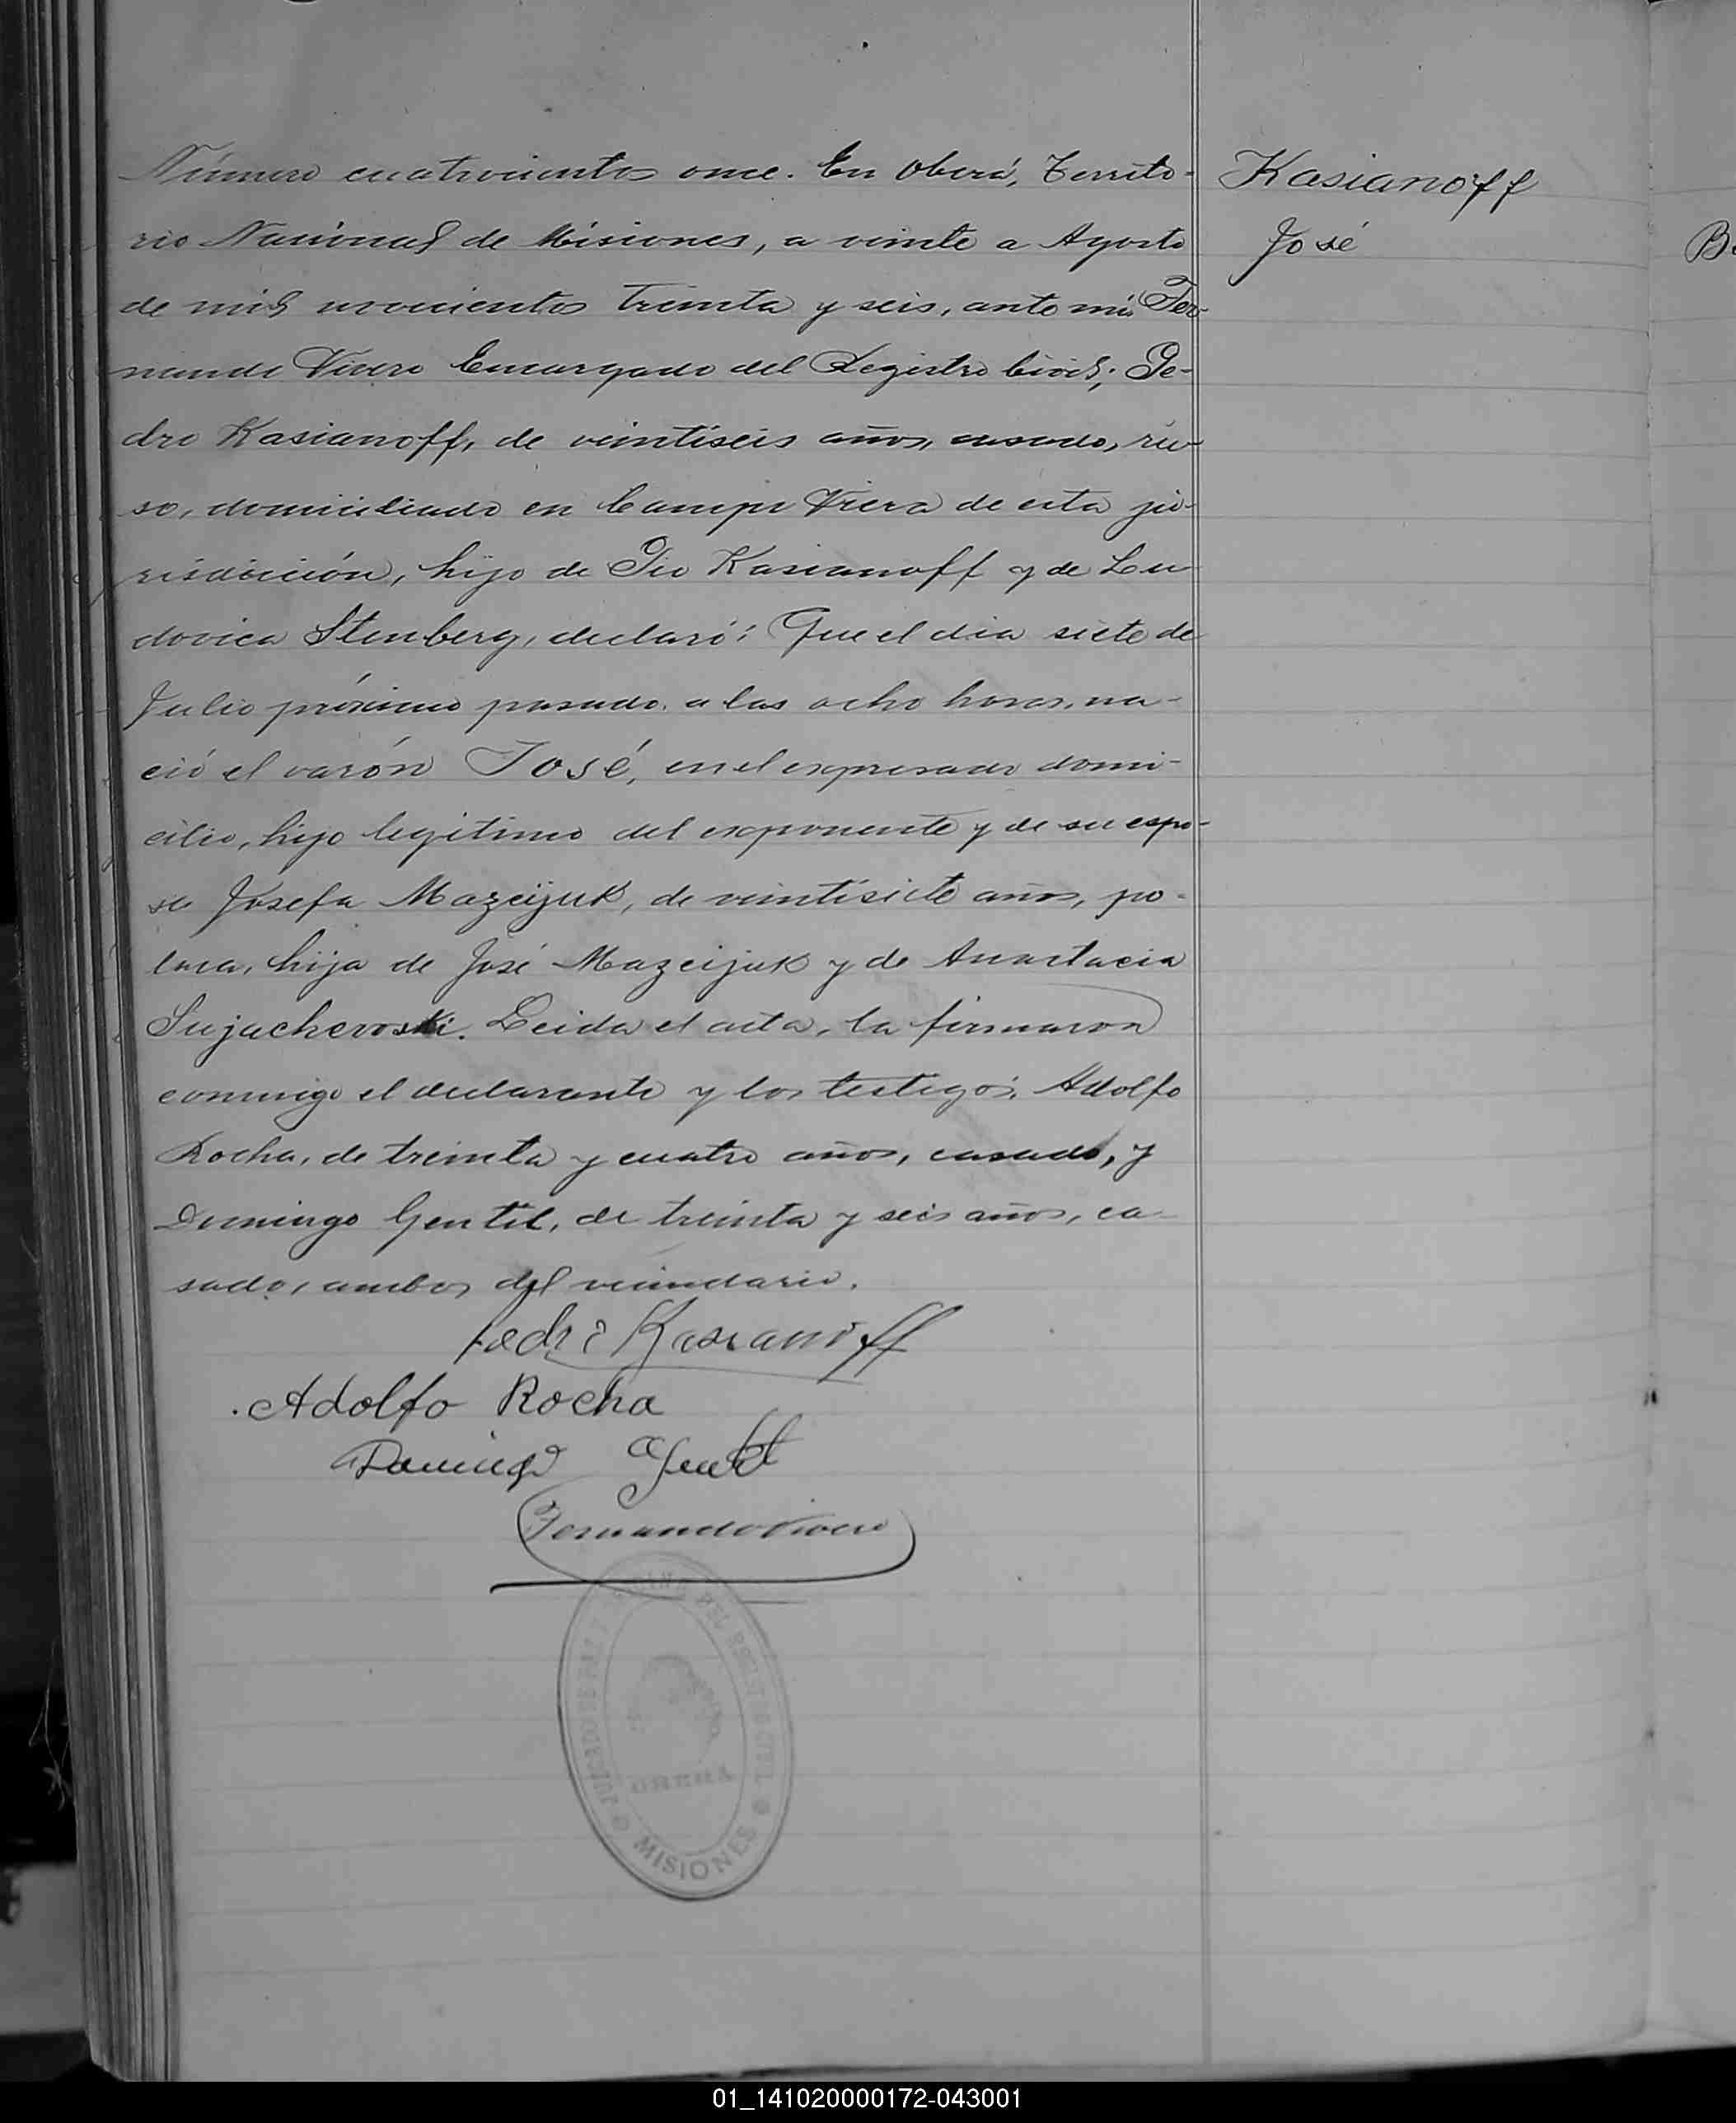 Número cuatrocientos once. En Oberá, Territo-
rio Nacional de Misiones, a veinte a Agosto
de mil novecientos treinta y seis, ante mi, Fer-
nando Vivero Encargado del Registro Civil; Pe-
dro Kasianoff, de veintiseis años, casado, ru-
so, domiciliado en Campo Viera de esta ju-
risdicción, hijo de Pio Kasianoff y de Lu
dovica Stenberg, declaró: Que el dia siete de
Julio próximo pasado, a las ocho horas, na-
ció el varón José, en el expresado domi-
cilio, hijo legitimo del exponente y de su espo-
sa Josefa Mazeijuk, de veintisiete años, po-
laca, hija de José Mazeijuk y de Anastacia
Sujachevoski. Leida el acta, la firmaron
conmigo el declarante y los testigos, Adolfo
Rocha, de treinta y cuatro años, casado, y
Domingo Gentil, de treinta y seis años, ca-
sado, ambos del vecindario.
Pedro Kasianoff
Adolfo Rocha
Domingo Gentil
Fernando Vivero
JUZGADO DE PAZ Y OFICINA DEL REGISTRO CIVIL
OBERÁ
MISIONES
Kasianoff
José
01_141020000172-043001